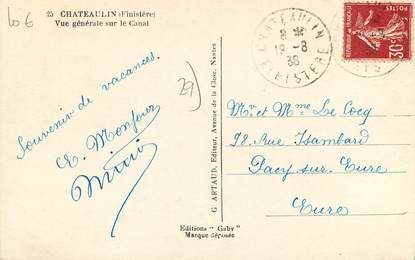 10 €
25 CHATEAULIN (Finistère)
Vue générale sur le Canal
29
Souvenir de vacances.
E. Monjour
Mimi
G ARTAUD, Editeur, Avenue de la Close, Nantes
Editions "Gaby"
Marque déposée
CHATEAULIN
8 H
19 -8
38
FINISTERE
POSTES
REPUBLIQUE FRANÇAISE
30c
Mr et Mme Le Cocq
98 Rue Isambard
Pacy sur Eure
Eure